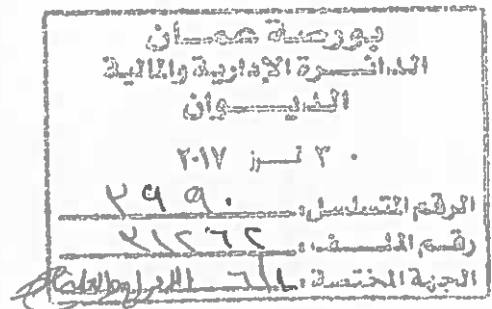 بورصة عمان
الدائرة الإدارية والمالية
الديوان
٣٠ تموز ٢٠١٧
الرقم المتسلسل: ٣٩٩٠
رقم الملف: ٣١٢٦٢
الجهة المختصة: